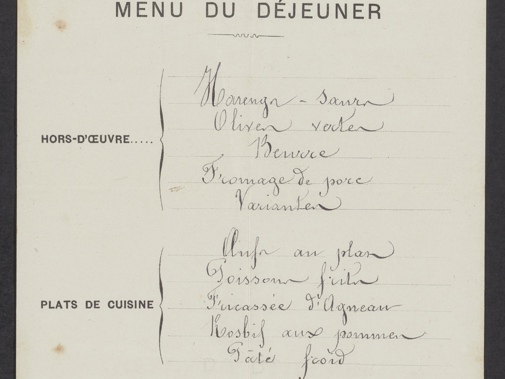 MENU DU DÉJEUNER
HORS-D'ŒUVRE.....
Harengs - saurs
Olives vertes
Beurre
Fromage de porc
Variantes
PLATS DE CUISINE
Œufs au plas
Poissons frits
Fricassée d'Agneau
Rosbif aux pommes
Pâté froid